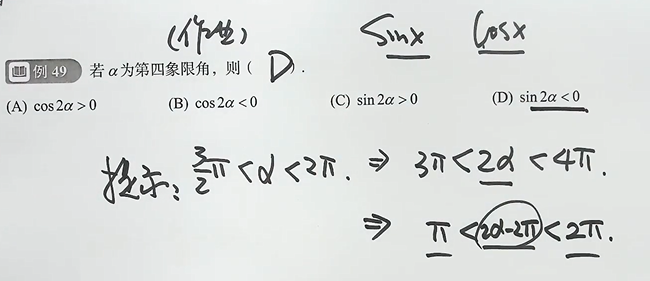 (作业) sinx cosx
例 49 若α为第四象限角，则( D ).
(A) cos2α>0 (B) cos2α<0 (C) sin2α>0 (D) sin2α<0
提示：3/2π<α<2π. ⇒ 3π<2α<4π.
⇒ π<2α-2π<2π.